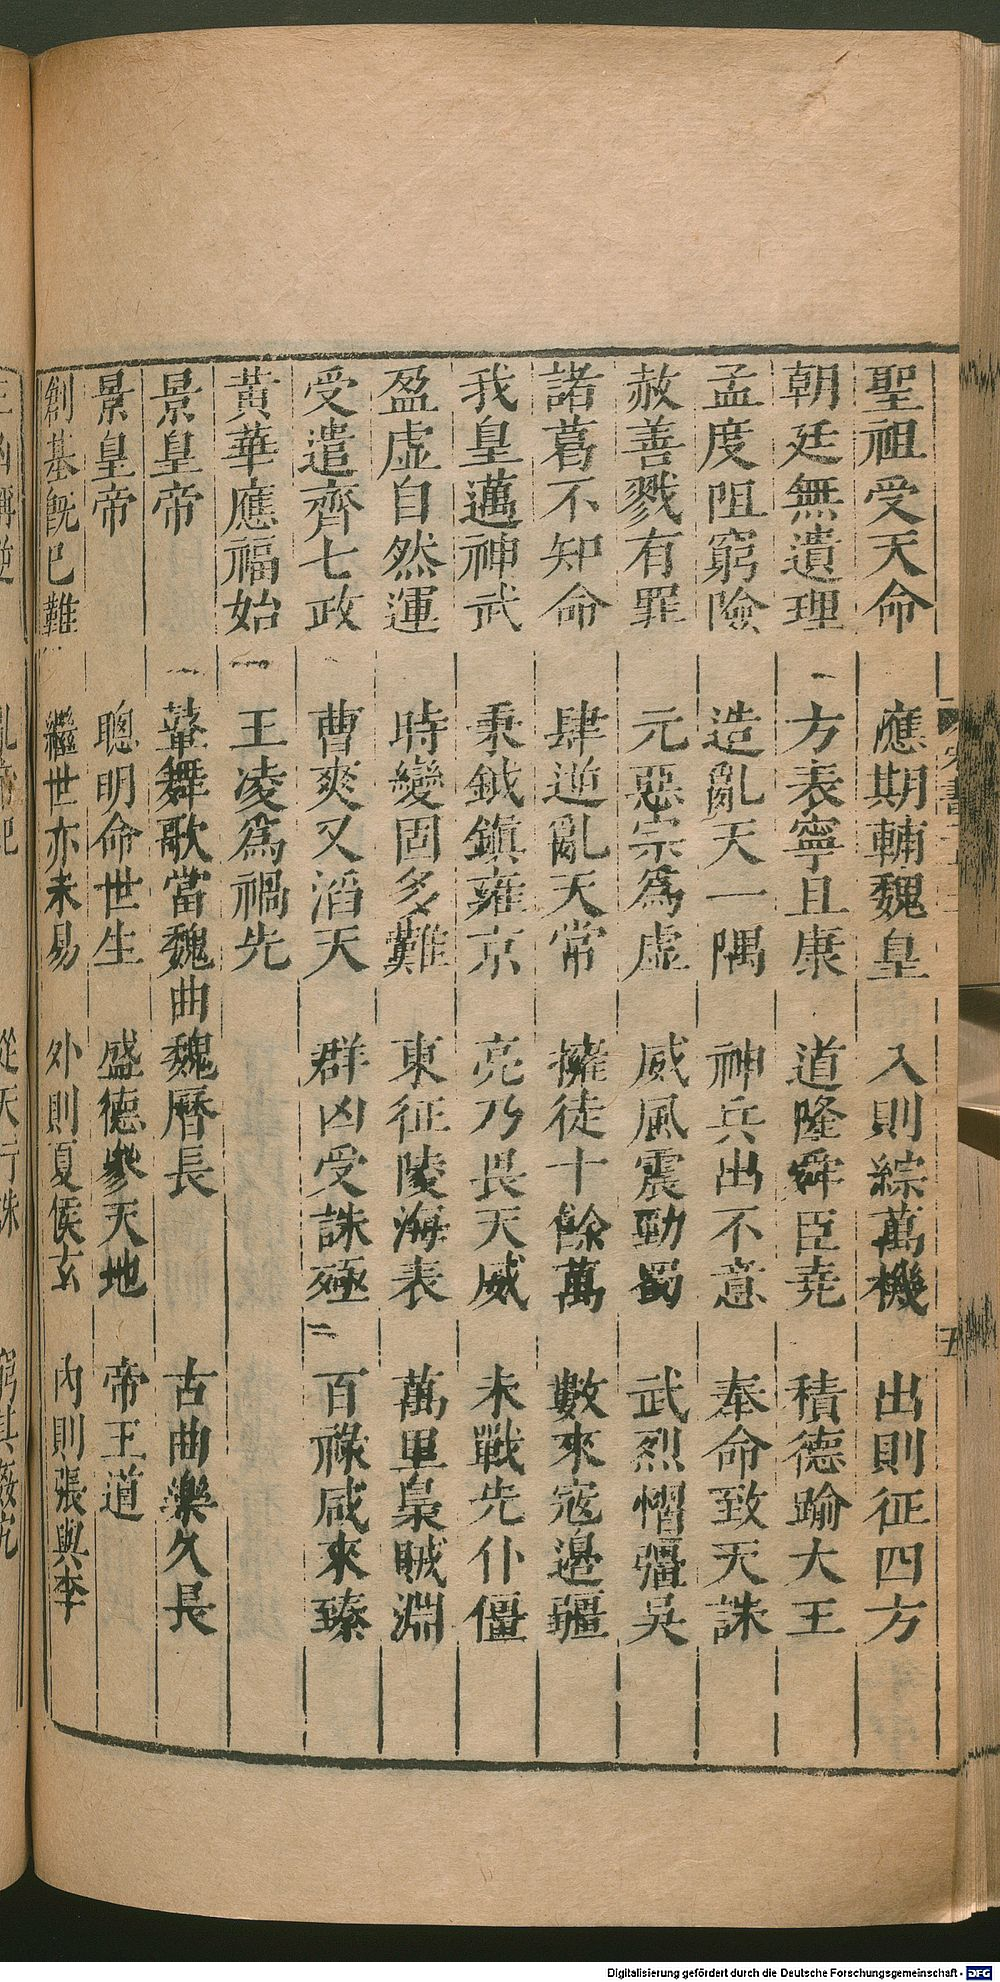 聖祖受天命 應期輔魏皇 入則綜萬機 出則征四方
朝廷無遺理 方表寧且康 道隆舜臣堯 積德踰大王
孟度阻窮險 造亂天一隅 神兵出不意 奉命致天誅
赦善戮有罪 元惡宗為虛 威風震勁蜀 武烈慴彊吳
諸葛不知命 肆逆亂天常 擁徒十餘萬 數來寇邊疆
我皇邁神武 秉鉞鎮雍京 亮乃畏天威 未戰先仆僵
盈虛自然運 時變固多難 東征陵海表 萬里梟賊淵
受遣齊七政 曹爽又滔天 群凶受誅殛 百祿咸來臻
黃華應福始 王凌為禍先
景皇帝 鞞舞歌當魏曲魏曆長 古曲樂久長
景皇帝 聰明命世生 盛德參天地 帝王道
創基既已難 繼世亦未易 外則夏侯玄 內則張與李
從天行誅 窮其姦宄
Digitalisierung gefördert durch die Deutsche Forschungsgemeinschaft - DFG